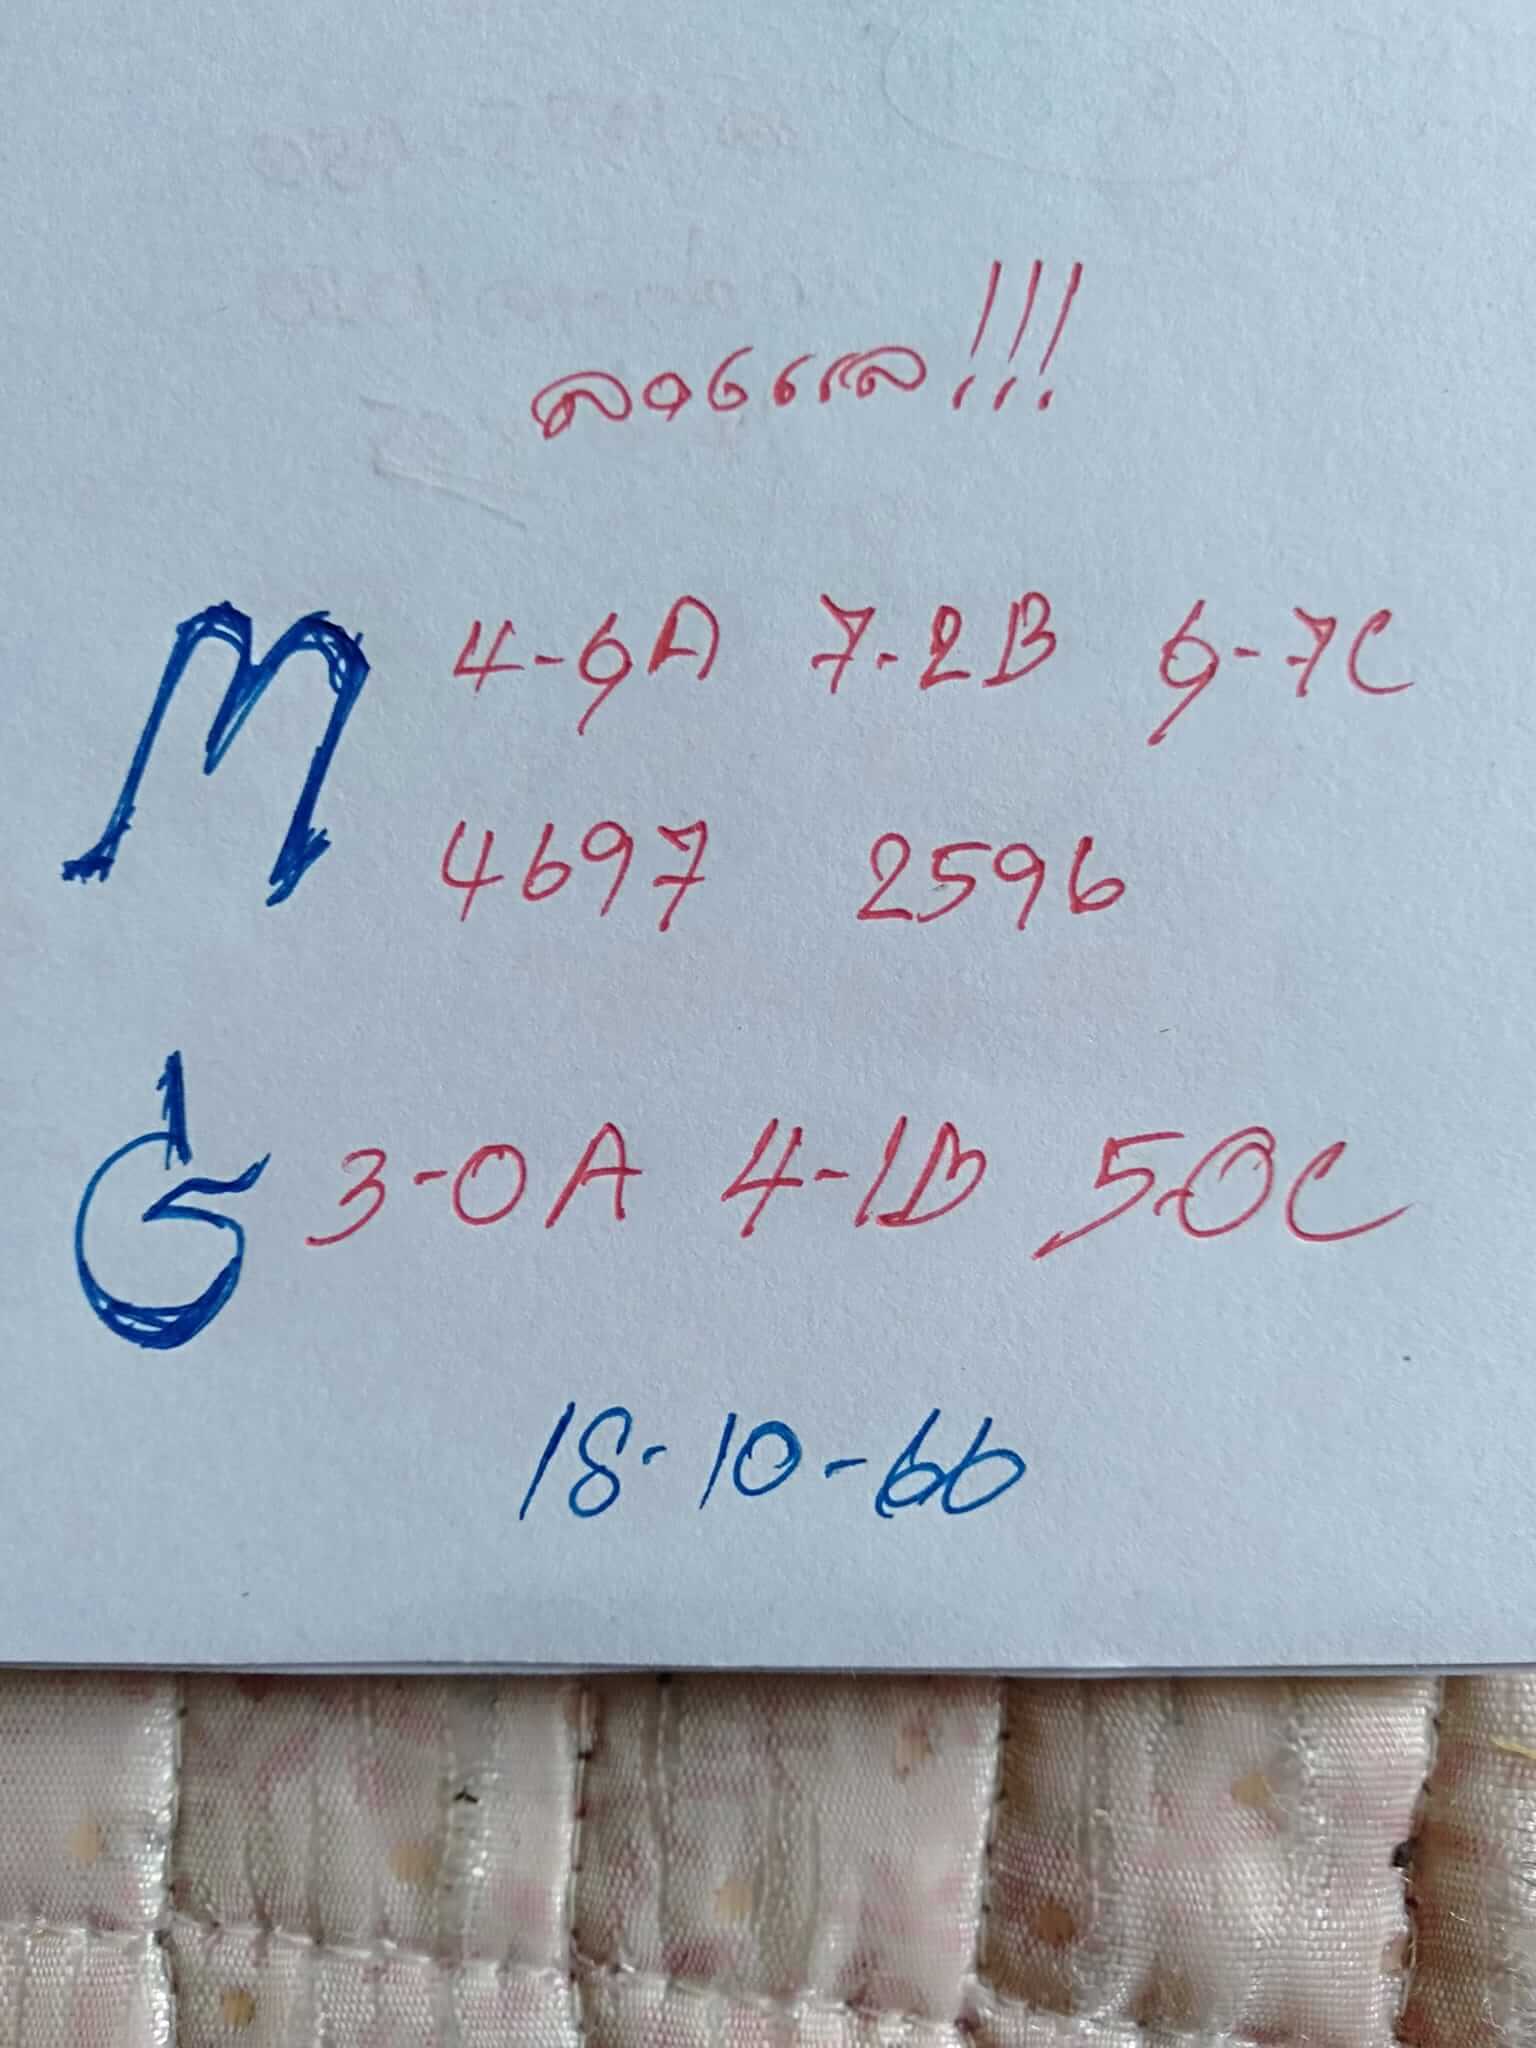 ลองแล!!!
M 4-9A 7-2B 9-7C
4697 2596
G 3-0A 4-1B 5-0C
18-10-66